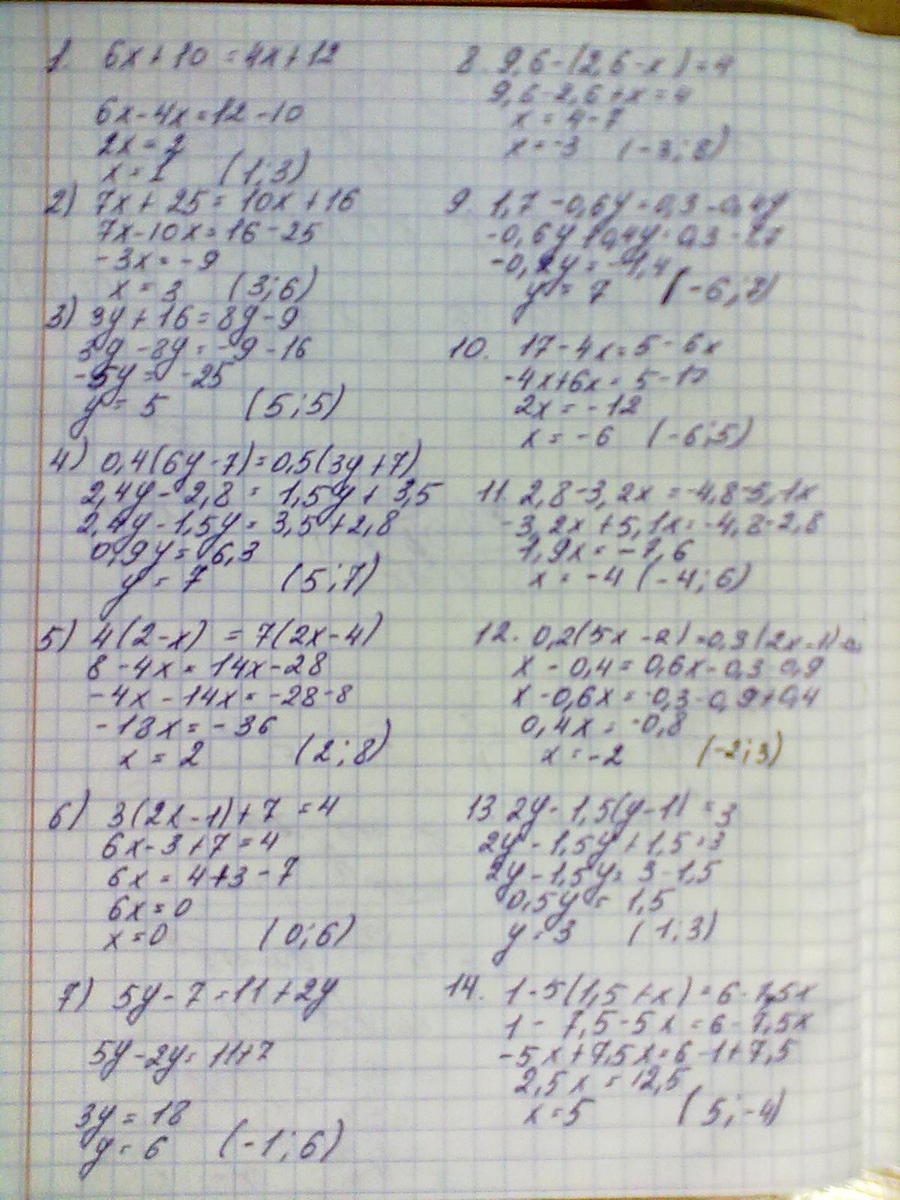 1. 6x+10=4x+12
6x-4x=12-10
2x=2
x=1 (1;3)
2) 7x+25=10x+16
7x-10x=16-25
-3x=-9
x=3 (3;6)
3) 3y+16=8y-9
3y-8y=-9-16
-5y=-25
y=5 (5;5)
4) 0,4(6y-7)=0,5(3y+7)
2,4y-2,8=1,5y+3,5
2,4y-1,5y=3,5+2,8
0,9y=6,3
y=7 (5;7)
5) 4(2-x)=7(2x-4)
8-4x=14x-28
-4x-14x=-28-8
-18x=-36
x=2 (2;8)
6) 3(2x-1)+7=4
6x-3+7=4
6x=4+3-7
6x=0
x=0 (0;6)
7) 5y-7=11+2y
5y-2y=11+7
3y=18
y=6 (-1;6)
8. 9,6-(2,6-x)=4
9,6-2,6+x=4
x=4-7
x=-3 (-3;8)
9. 1,7-0,6y=0,3-0,4y
-0,6y+0,4y=0,3-1,7
-0,2y=-1,4
y=7 (-6;7)
10. 17-4x=5-6x
-4x+6x=5-17
2x=-12
x=-6 (-6;5)
11. 2,8-3,2x=-4,8-5,1x
-3,2x+5,1x=-4,8-2,8
1,9x=-7,6
x=-4 (-4;6)
12. 0,2(5x-2)=0,3(2x-1)
x-0,4=0,6x-0,3-0,9
x-0,6x=-0,3-0,9+0,4
0,4x=-0,8
x=-2 (-2;3)
13 2y-1,5(y-1)=3
2y-1,5y+1,5=3
2y-1,5y=3-1,5
0,5y=1,5
y=3 (1;3)
14. 1-5(1,5+x)=6-7,5x
1-7,5-5x=6-7,5x
-5x+7,5x=6-1+7,5
2,5x=12,5
x=5 (5;-4)